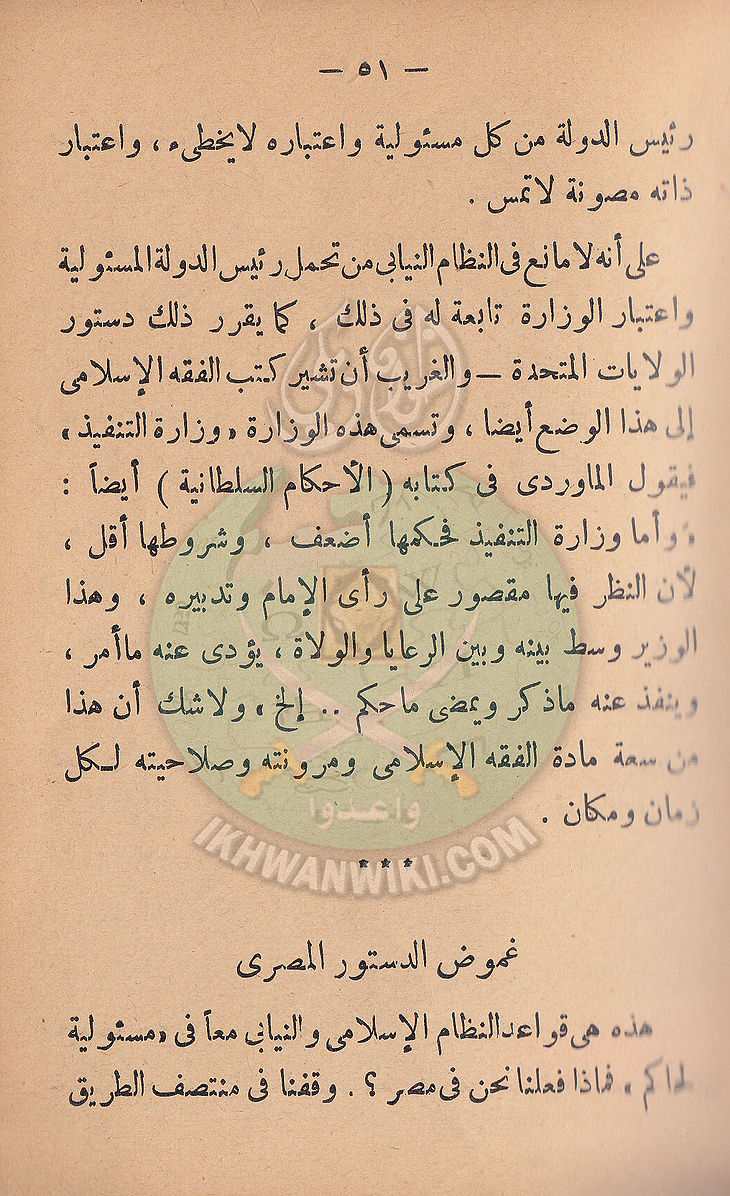 — ٥١ —
رئيس الدولة من كل مسئولية واعتباره لايخطىء ، واعتبار
ذاته مصونة لاتمس .
على أنه لا مانع فى النظام النيابى من تحمل رئيس الدولة المسئولية
واعتبار الوزارة تابعة له فى ذلك ، كما يقرر ذلك دستور
الولايات المتحدة — والغريب أن تشير كتب الفقه الإسلامى
إلى هذا الوضع أيضا ، وتسمى هذه الوزارة «وزارة التنفيذ»
فيقول الماوردى فى كتابه ( الأحكام السلطانية ) أيضاً :
«وأما وزارة التنفيذ فحكمها أضعف ، وشروطها أقل ،
لأن النظر فيها مقصور على رأى الإمام وتدبيره ، وهذا
الوزير وسط بينه وبين الرعايا والولاة ، يؤدى عنه ماأمر ،
وينفذ عنه ماذكر ويمضى ماحكم .. إلخ » ولاشك أن هذا
من سعة مادة الفقه الإسلامى ومرونته وصلاحيته لكل
زمان ومكان .
* * *
غموض الدستور المصرى
هذه هى قواعد النظام الإسلامى والنيابى معاً فى «مسئولية
الحاكم » فماذا فعلنا نحن فى مصر ؟ . وقفنا فى منتصف الطريق
واعدوا
IKHWANWIKI.COM